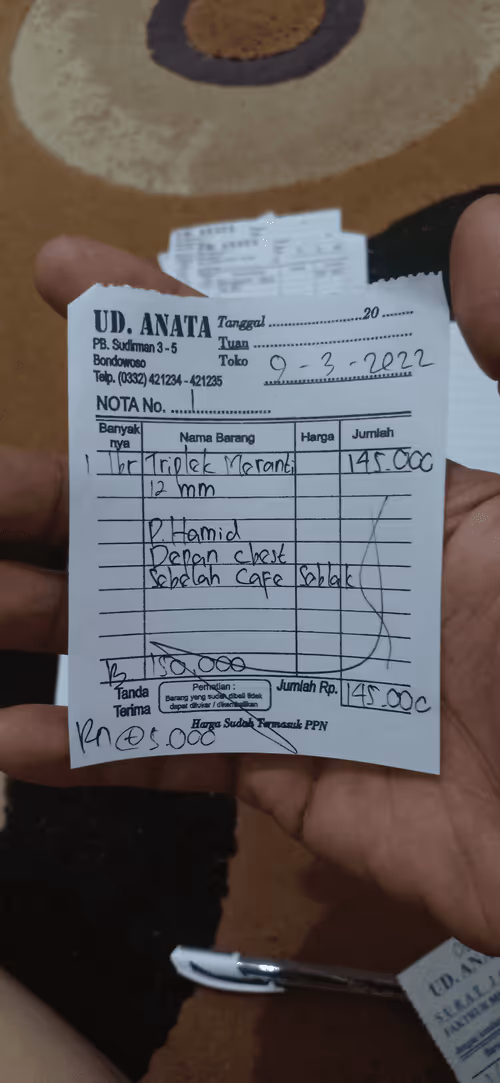 UD. ANATA
PB. Sudirman 3 - 5
Bondowoso
Telp. (0332) 421234 - 421235
Tanggal ........................20 .........
Tuan ..........................................
Toko 9 - 3 - 2022
NOTA No. 1
Banyak nya Nama Barang Harga Jumlah
1 lbr Triplek Meranti 145.000
12 mm
P. Hamid
Depan chest
Sebelah Cafe Seblak
B 150,000
Tanda Terima
Perhatian :
Barang yang sudah dibeli tidak
dapat ditukar / dikembalikan
Jumlah Rp. 145.000
Harga Sudah Termasuk PPN
5.000
UD. ANATA
UD. AN
SURAT J